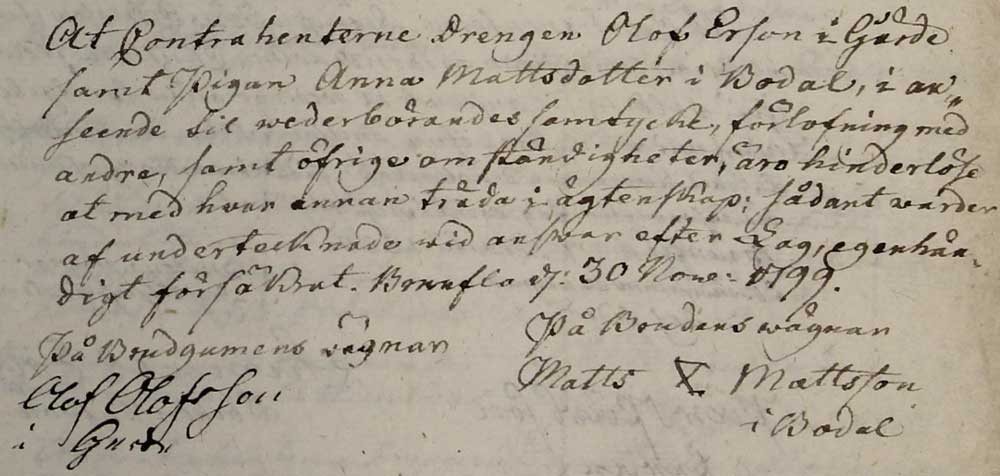 At Contrahenterne Drengen Olof Erson i Gärde
samt Pigan Anna Mattsdotter i Bodal, i an-
seende til wederbörandes samtycke, förlofning med
andra, samt öfrige omständigheter, äro hinderlöse
at med hvar annan träda i ägtenskap; sådant warder
af undertecknade vid answar efter Lag, egenhän-
digt försäkrat. Brunflo d: 30 Nov: 1799.
På Brudgumens wägnar
Olof Olofsson
i Gärde
På Brudens wägnar
Matts X Mattsson
i Bodal